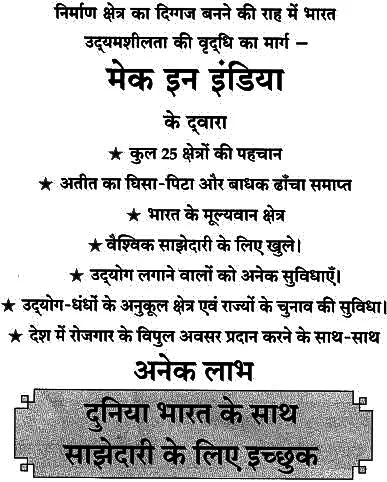 निर्माण क्षेत्र का दिग्गज बनने की राह में भारत
उद्यमशीलता की वृद्धि का मार्ग –
मेक इन इंडिया
के द्वारा
★ कुल 25 क्षेत्रों की पहचान
★ अतीत का घिसा-पिटा और बाधक ढाँचा समाप्त
★ भारत के मूल्यवान क्षेत्र
★ वैश्विक साझेदारी के लिए खुले।
★ उद्योग लगाने वालों को अनेक सुविधाएँ।
★ उद्योग-धंधों के अनुकूल क्षेत्र एवं राज्यों के चुनाव की सुविधा।
★ देश में रोजगार के विपुल अवसर प्रदान करने के साथ-साथ
अनेक लाभ
दुनिया भारत के साथ
साझेदारी के लिए इच्छुक